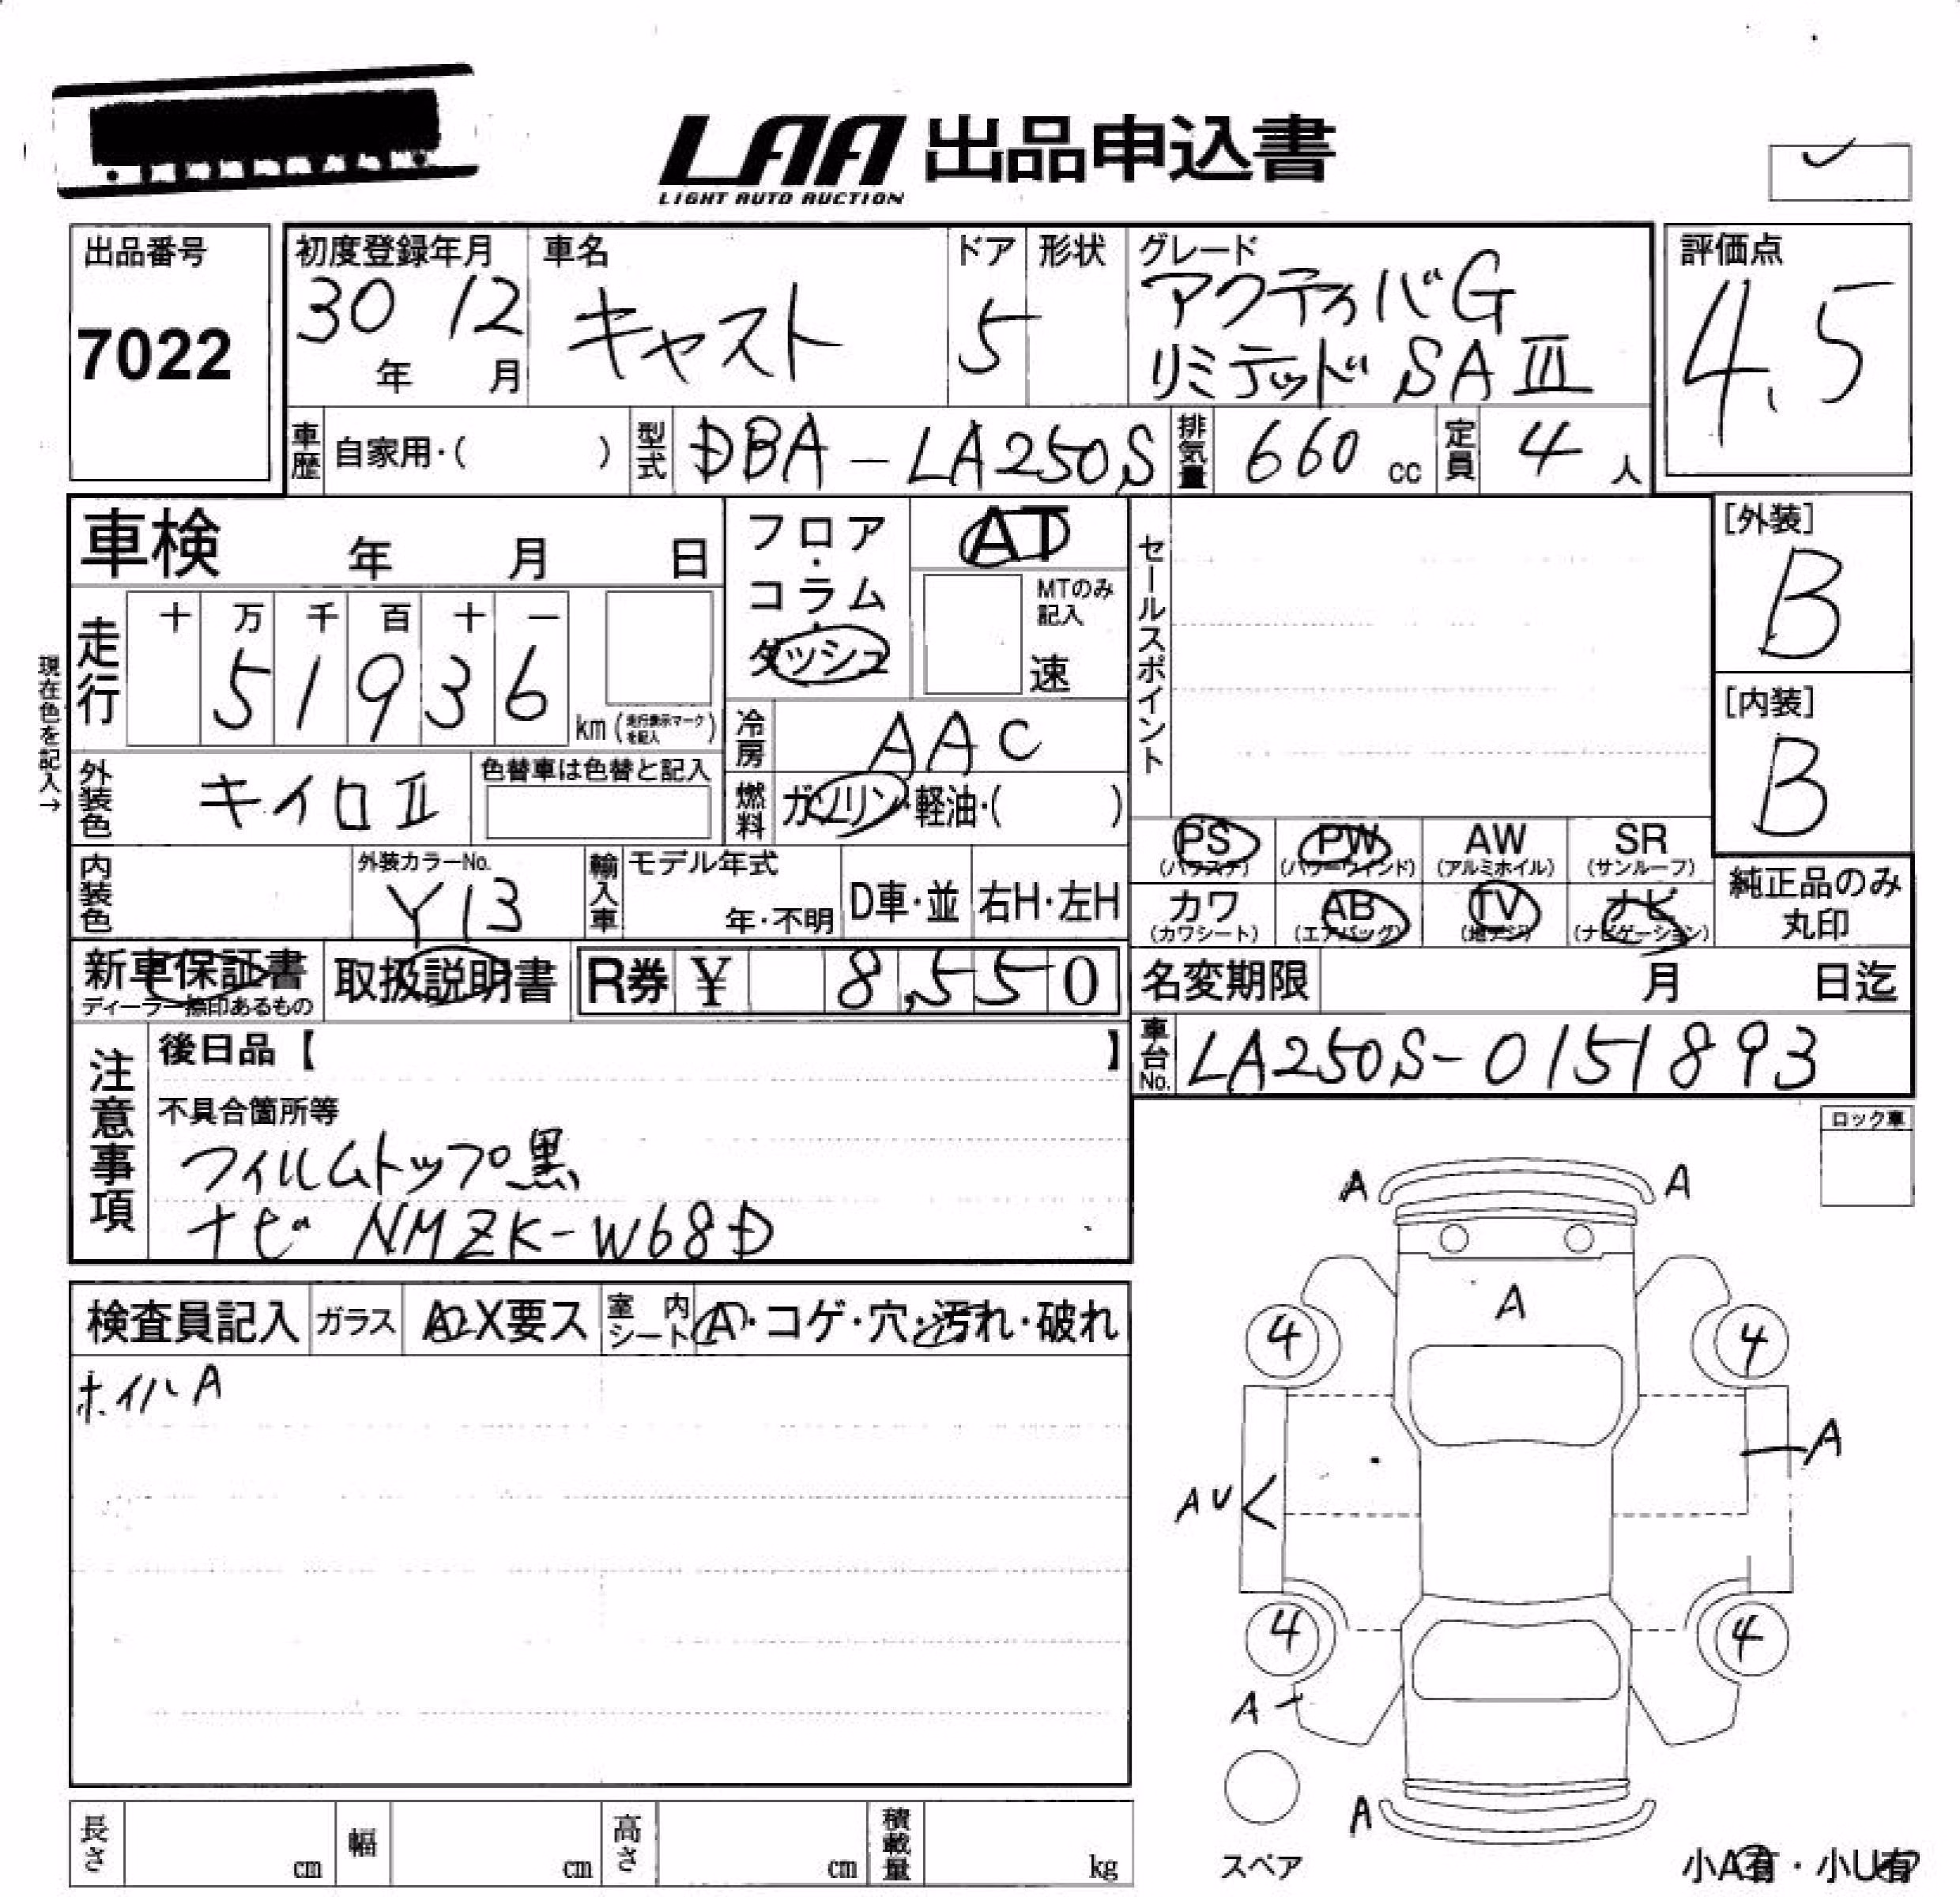 LAA 出品申込書
LIGHT AUTO AUCTION
出品番号
7022
初度登録年月
30 年 12 月
車名
キャスト
ドア
5
形状
グレード
アクティバG
リミテッド SAⅢ
評価点
4.5
車歴 自家用・( )
型式 DBA-LA250S
排気量 660 cc
定員 4 人
車検 年 月 日
フロア・コラム・ダッシュ
AT
MTのみ記入
速
セールスポイント
[外装]
B
[内装]
B
現在色を記入→
走行
十 万 千 百 十 一
5 1 9 3 6
km (走行表示マークを記入)
冷房 AAC
外装色 キイロⅡ
色替車は色替と記入
燃料 ガソリン・軽油・( )
PS (パワステ)
PW (パワーウィンド)
AW (アルミホイル)
SR (サンルーフ)
内装色
外装カラーNo.
Y13
輸入車
モデル年式
年・不明
D車・並
右H・左H
カワ (カワシート)
AB (エアバッグ)
TV (地デジ)
ナビ (ナビゲーション)
純正品のみ丸印
新車保証書
ディーラー捺印あるもの
取扱説明書
R券 ¥ 8,550
名変期限 月 日迄
車台No. LA250S-0151893
注意事項
後日品【 】
不具合箇所等
フィルムトップ黒
ナビ NMZK-W68D
ロック車
検査員記入
ガラス
A・X要ス
室内シート
A・コゲ・穴・汚れ・破れ
ホイル A
A A
A
4 4
A
AU
4 4
A
A
スペア
長さ cm
幅 cm
高さ cm
積載量 kg
小A有・小U有